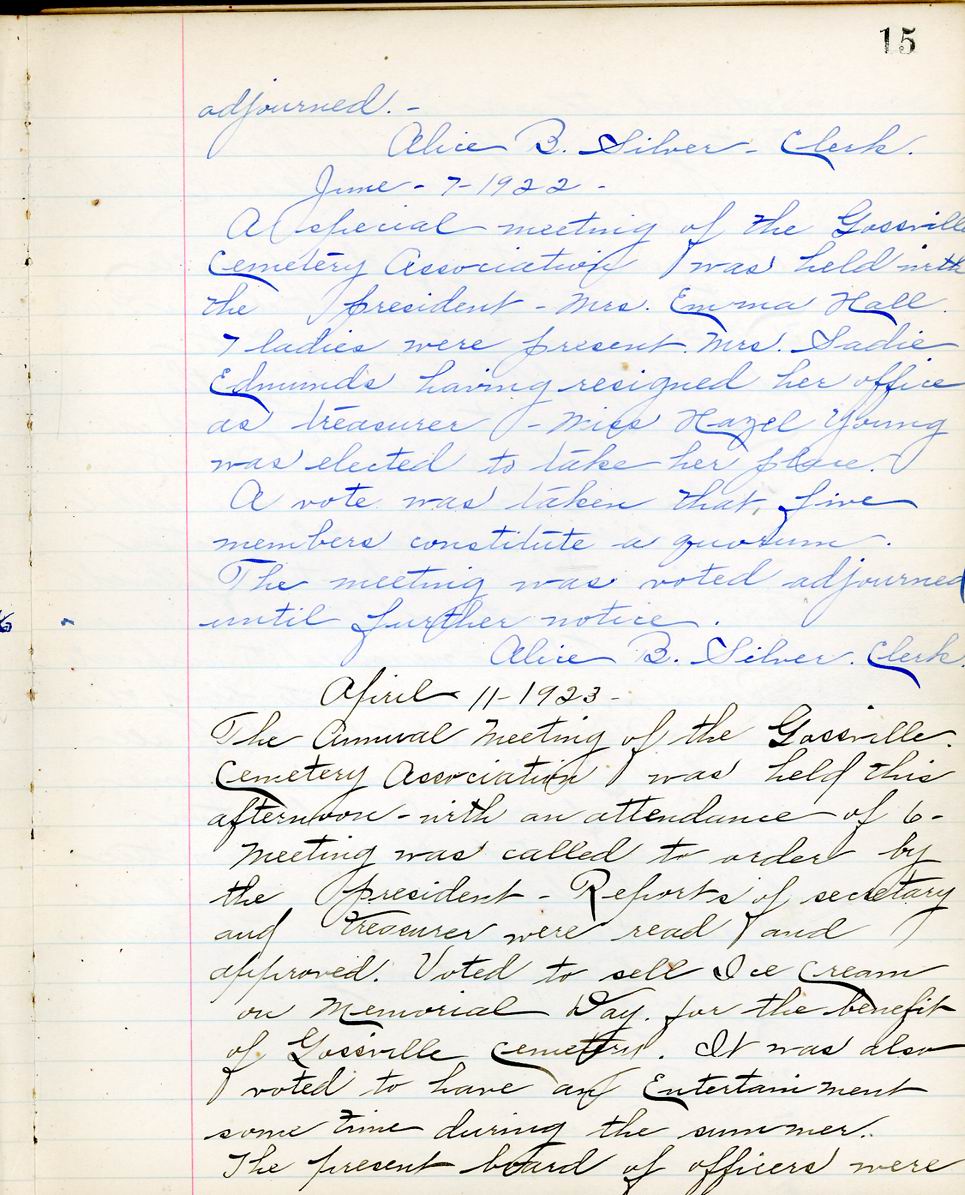 15
adjourned. -
Alice B. Silver - Clerk.
June - 7 - 1922 -
A special meeting of the Gossville
Cemetery Association was held with
the president - Mrs. Emma Hall.
7 ladies were present. Mrs. Sadie
Edmunds having resigned her office
as treasurer - Miss Hazel Young
was elected to take her place.
A vote was taken that, five
members constitute a quorum.
The meeting was voted adjourned
until further notice.
Alice B. Silver. Clerk.
April 11 - 1923 -
The Annual Meeting of the Gossville.
Cemetery Association was held this
afternoon - with an attendance of 6 -
Meeting was called to order by
the president - Reports of secretary
and treasurer were read and
approved. Voted to sell Ice Cream
on Memorial Day. for the benefit
of Gossville Cemetery. It was also
voted to have an Entertainment
some time during the summer.
The present board of officers were